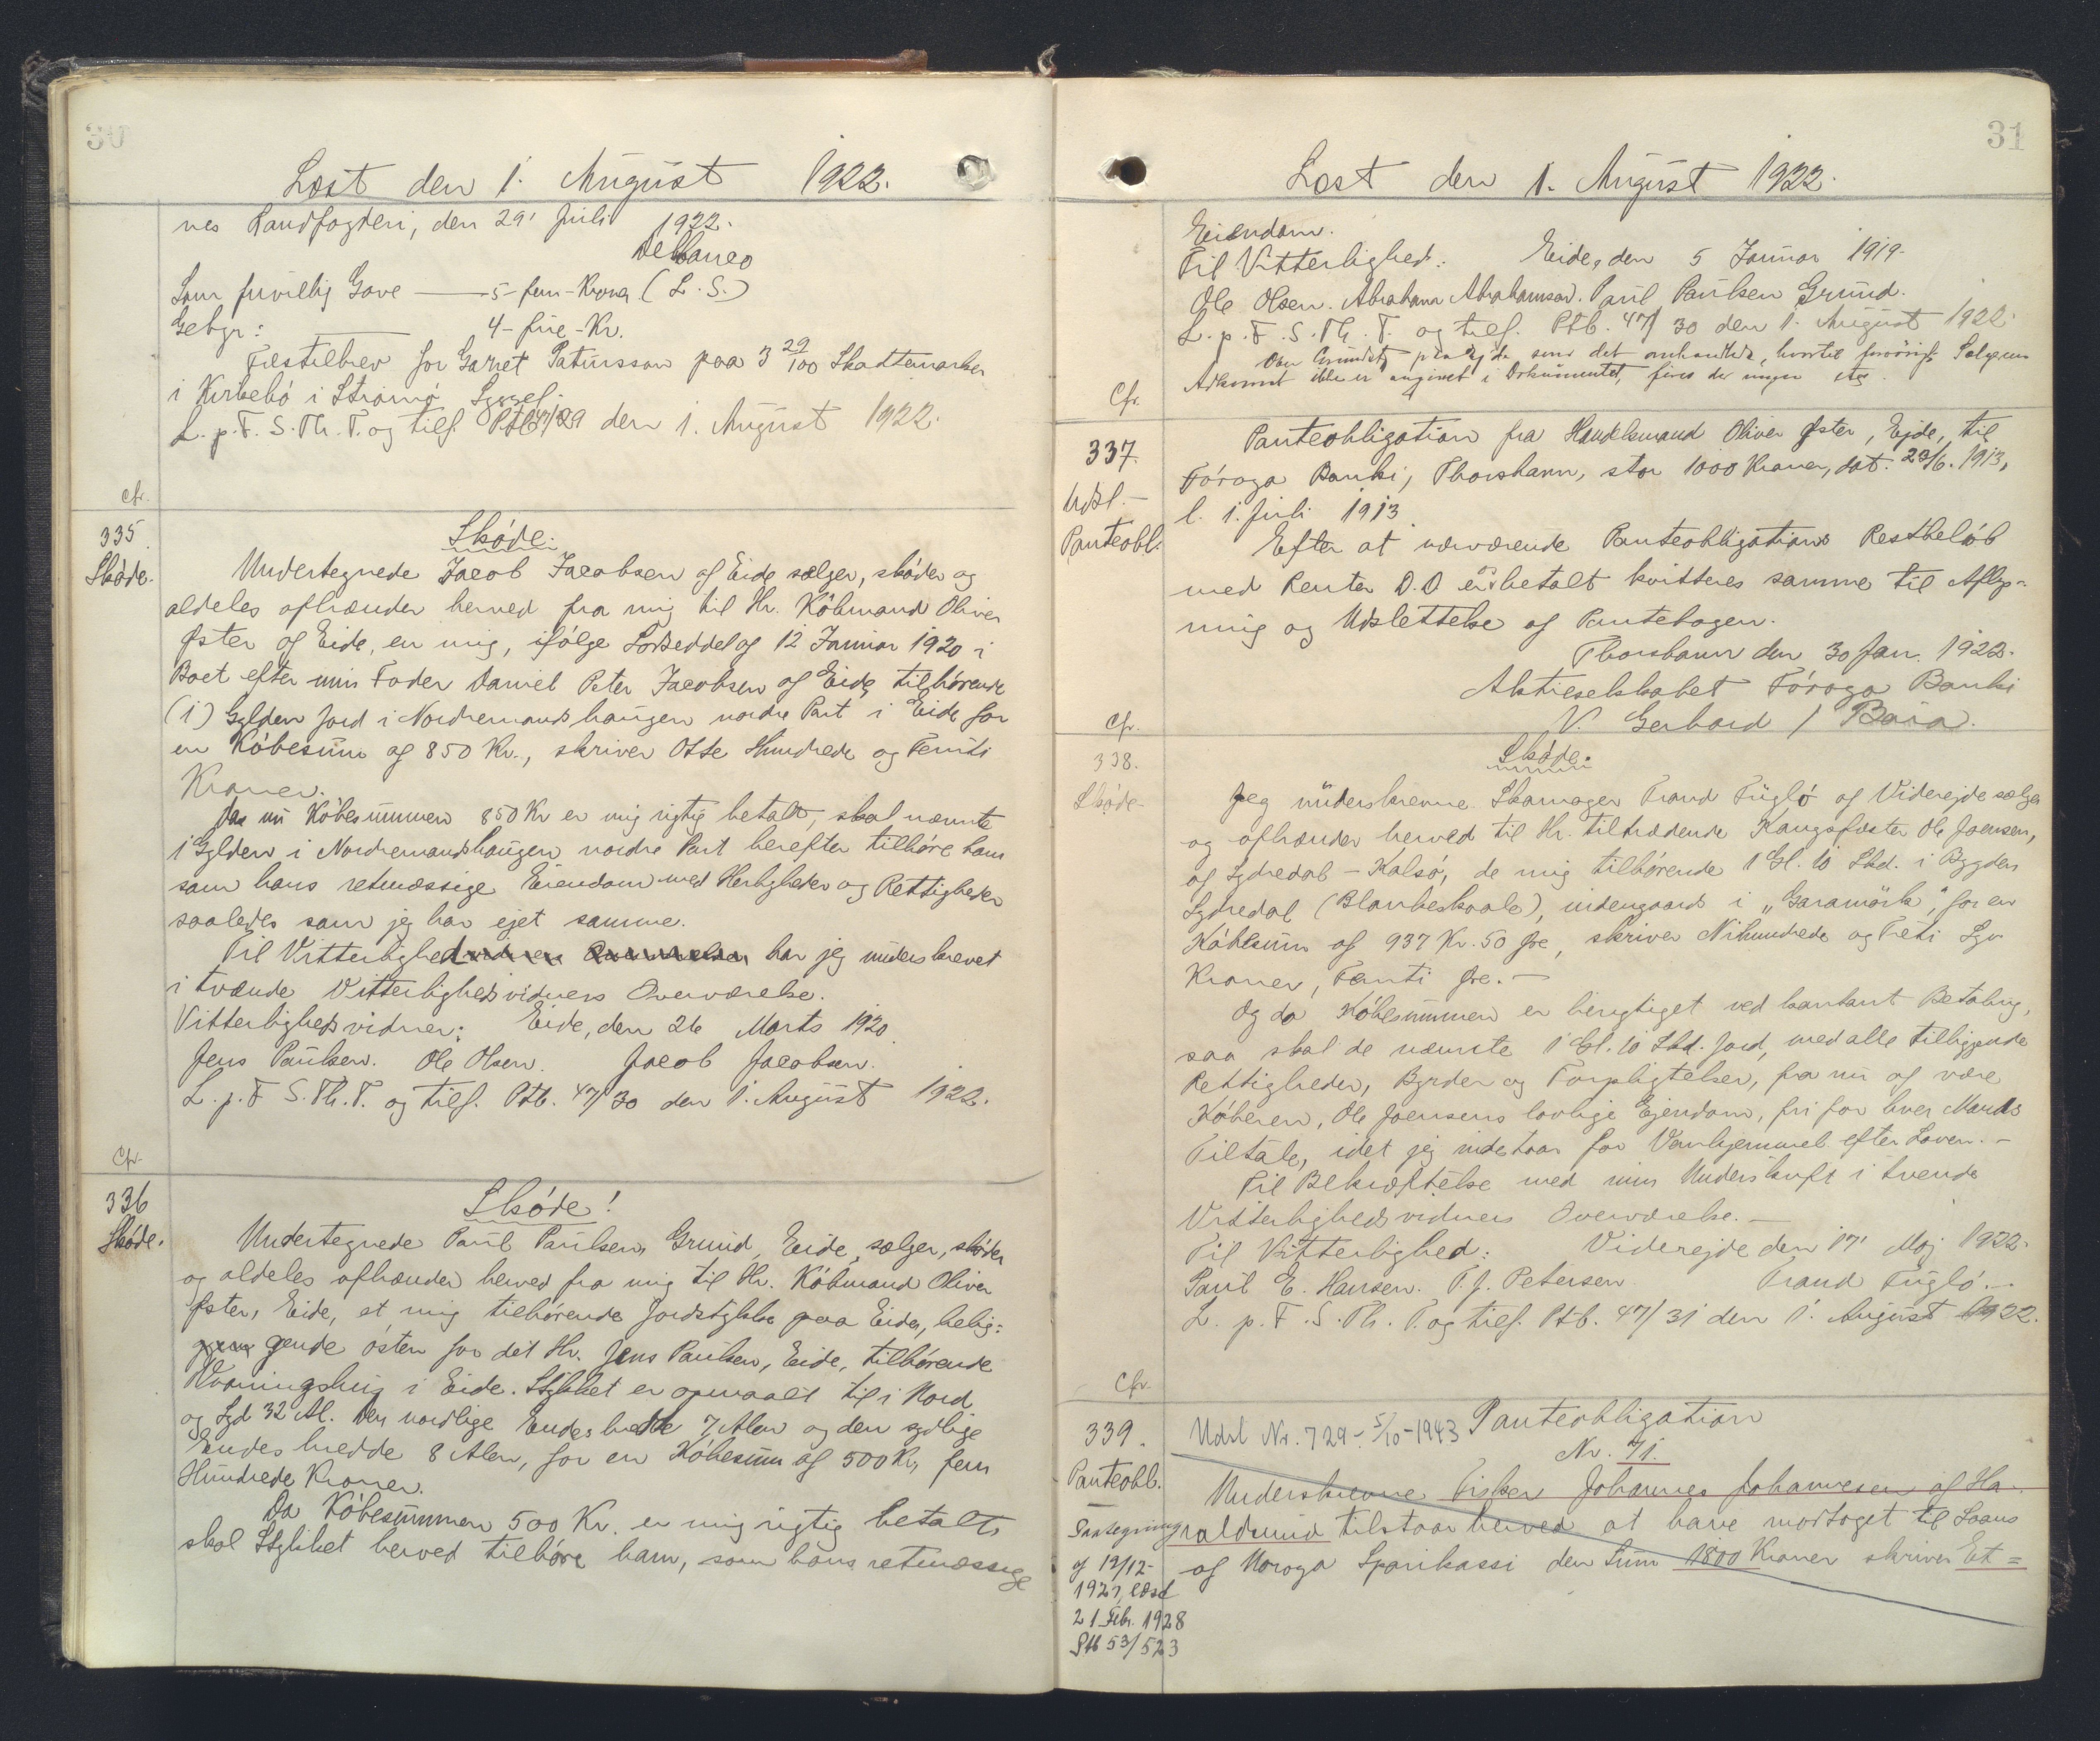 30
Læst den 1. August 1922.
nes Landfogderi, den 29' Juli 1922.
Som frivillig Gave — 5 - fem - Kroner (L. S.)
Gebyr: 4 - fire - Kr.
Fæstebrev for Gazet Patursson paa 3 29/100 Skattemarker
i Kirkebø i Strømø Syssel.
L. p. F. S. Th. T. og tilf. Ptb. 47/29 den 1. August 1922.
Cfr.
335
Skøde.
Skøde.
Undertegnede Jacob Jacobsen af Eide sælger, skøder og
aldeles afhænder herved fra mig til Hr. Købmand Oliver
Øster af Eide, en mig, ifølge Lodseddel af 12 Januar 1920 i
Boet efter min Fader Daniel Peter Jacobsen af Eide, tilhørende
(1) Gylden Jord i Nordremandshaugen nordre Part i Eide for
en Købesum af 850 Kr., skriver Otte Hundrede og Femti
Kroner.
Da nu Købesummen 850 Kr er mig rigtig betalt, skal nævnte
1 Gylden i Nordremandshaugen nordre Part herefter tilhøre ham
som hans retmæssige Eiendom med Herligheder og Rettigheder
saaledes som jeg har ejet samme.
Til Vitterlighed har jeg underskrevet
i tvende Vitterlighedsvidners Overværelse.
Vitterlighedsvidner: Eide, den 26 Marts 1920
Jens Paulsen. Ole Olsen. Jacob Jacobsen.
L. p. F. S. Th. T. og tilf. Ptb. 47/30 den 1. August 1922.
Cfr.
336
Skøde.
Skøde!
Undertegnede Paul Paulsen, Grund, Eide, sælger, skøder
og aldeles afhænder herved fra mig til Hr. Købmand Oliver
Øster, Eide, et mig tilhørende Jordstykke paa Eide, belig=
gende østen for det Hr. Jens Paulsen, Eide, tilhørende
Vaaningshus i Eide. Stykket er opmaalt til i Nord
og Syd 32 Al. Den nordlige Endesbredde 7 Alen og den sydlige
Endes bredde 8 Alen, for en Købesum af 500 Kr, fem
Hundrede Kroner.
Da Købesummen 500 Kr. er mig rigtig betalt,
skal Stykket herved tilhøre ham, som hans retmæssige
31
Læst den 1. August 1922.
Eiendom.
Til Vitterlighed: Eide, den 5 Januar 1919.
Ole Olsen. Abraham Abrahamsen. Paul Paulsen Grund.
L. p. F. S. Th. T. og tilf. Ptb. 47/30 den 1. August 1922.
Grundstk paa Ejde som det omhandlede, hvortil forøvrigt Sælgeren
Adkomst ikke er angivet i Dokumentet, findes der ingen
Cfr.
337.
Udsl.-
Panteobl.
Panteobligation fra Handelsmand Oliver Øster, Ejde, til
Føroya Banki, Thorshavn, stor 1000 Kroner, dat. 23/6. 1913,
l. 1. Juli 1913
Efter at nærværende Panteobligations Restbeløb
med Renter D.D er betalt kvitteres samme til Aflys-
ning og Udslettelse af Pantebogen.
Thorshavn den 30 Jan. 1922.
Aktieselskabet Føroya Banki
V. Gerhard / Baia.
Cfr.
338.
Skøde.
Skøde.
Jeg underskrevne Skomager Trand Fuglø af Viderejde sælger
og afhænder herved til Hr. tiltrædende Kongsfæster Ole Joensen,
af Sydredal - Kalsø, de mig tilhørende 1 Gl. 10 Skd. i Bygden
Sydredal (Blankeskaale), indengaards i "Garamörk", for en
Købesum af 937 Kr. 50 Øre, skriver Nihundrede og Treti Syv
Kroner, Femti Øre.-
Og da Købesummen er berigtiget ved kontant Betaling,
saa skal de nævnte 1 Gl. 10 Skd. Jord, med alle tilliggende
Rettigheder, Byrder og Forpligtelser, fra nu af være
Køberen, Ole Joensens lovlige Ejendom, fri for hver Mands
Tiltale, idet jeg indestaar for Vanhjemmel efter Loven.-
Til Bekræftelse med min Underskrift i tvende
Vitterlighedsvidners Overværelse.-
Til Vitterlighed: Viderejde den 17' Maj 1922.
Poul E. Hansen. P. J. Petersen Trand Fuglø.-
L. p. F. S. Th. T. og tilf. Ptb. 47/31 den 1. August 1922.
Cfr.
339.
Panteobl.
Paategning
af 19/12-
1927, læst
21 Febr. 1928
Ptb 53/523
Udsl Nr. 729 - 5/10 - 1943 Panteobligation
Nr. 71.
Underskrevne Fisker Johannes Johannesen af Ha-
raldsund tilstaar herved at have modtaget til Laans
af Noroya Sparikassi den Sum 1800 Kroner skriver Et=